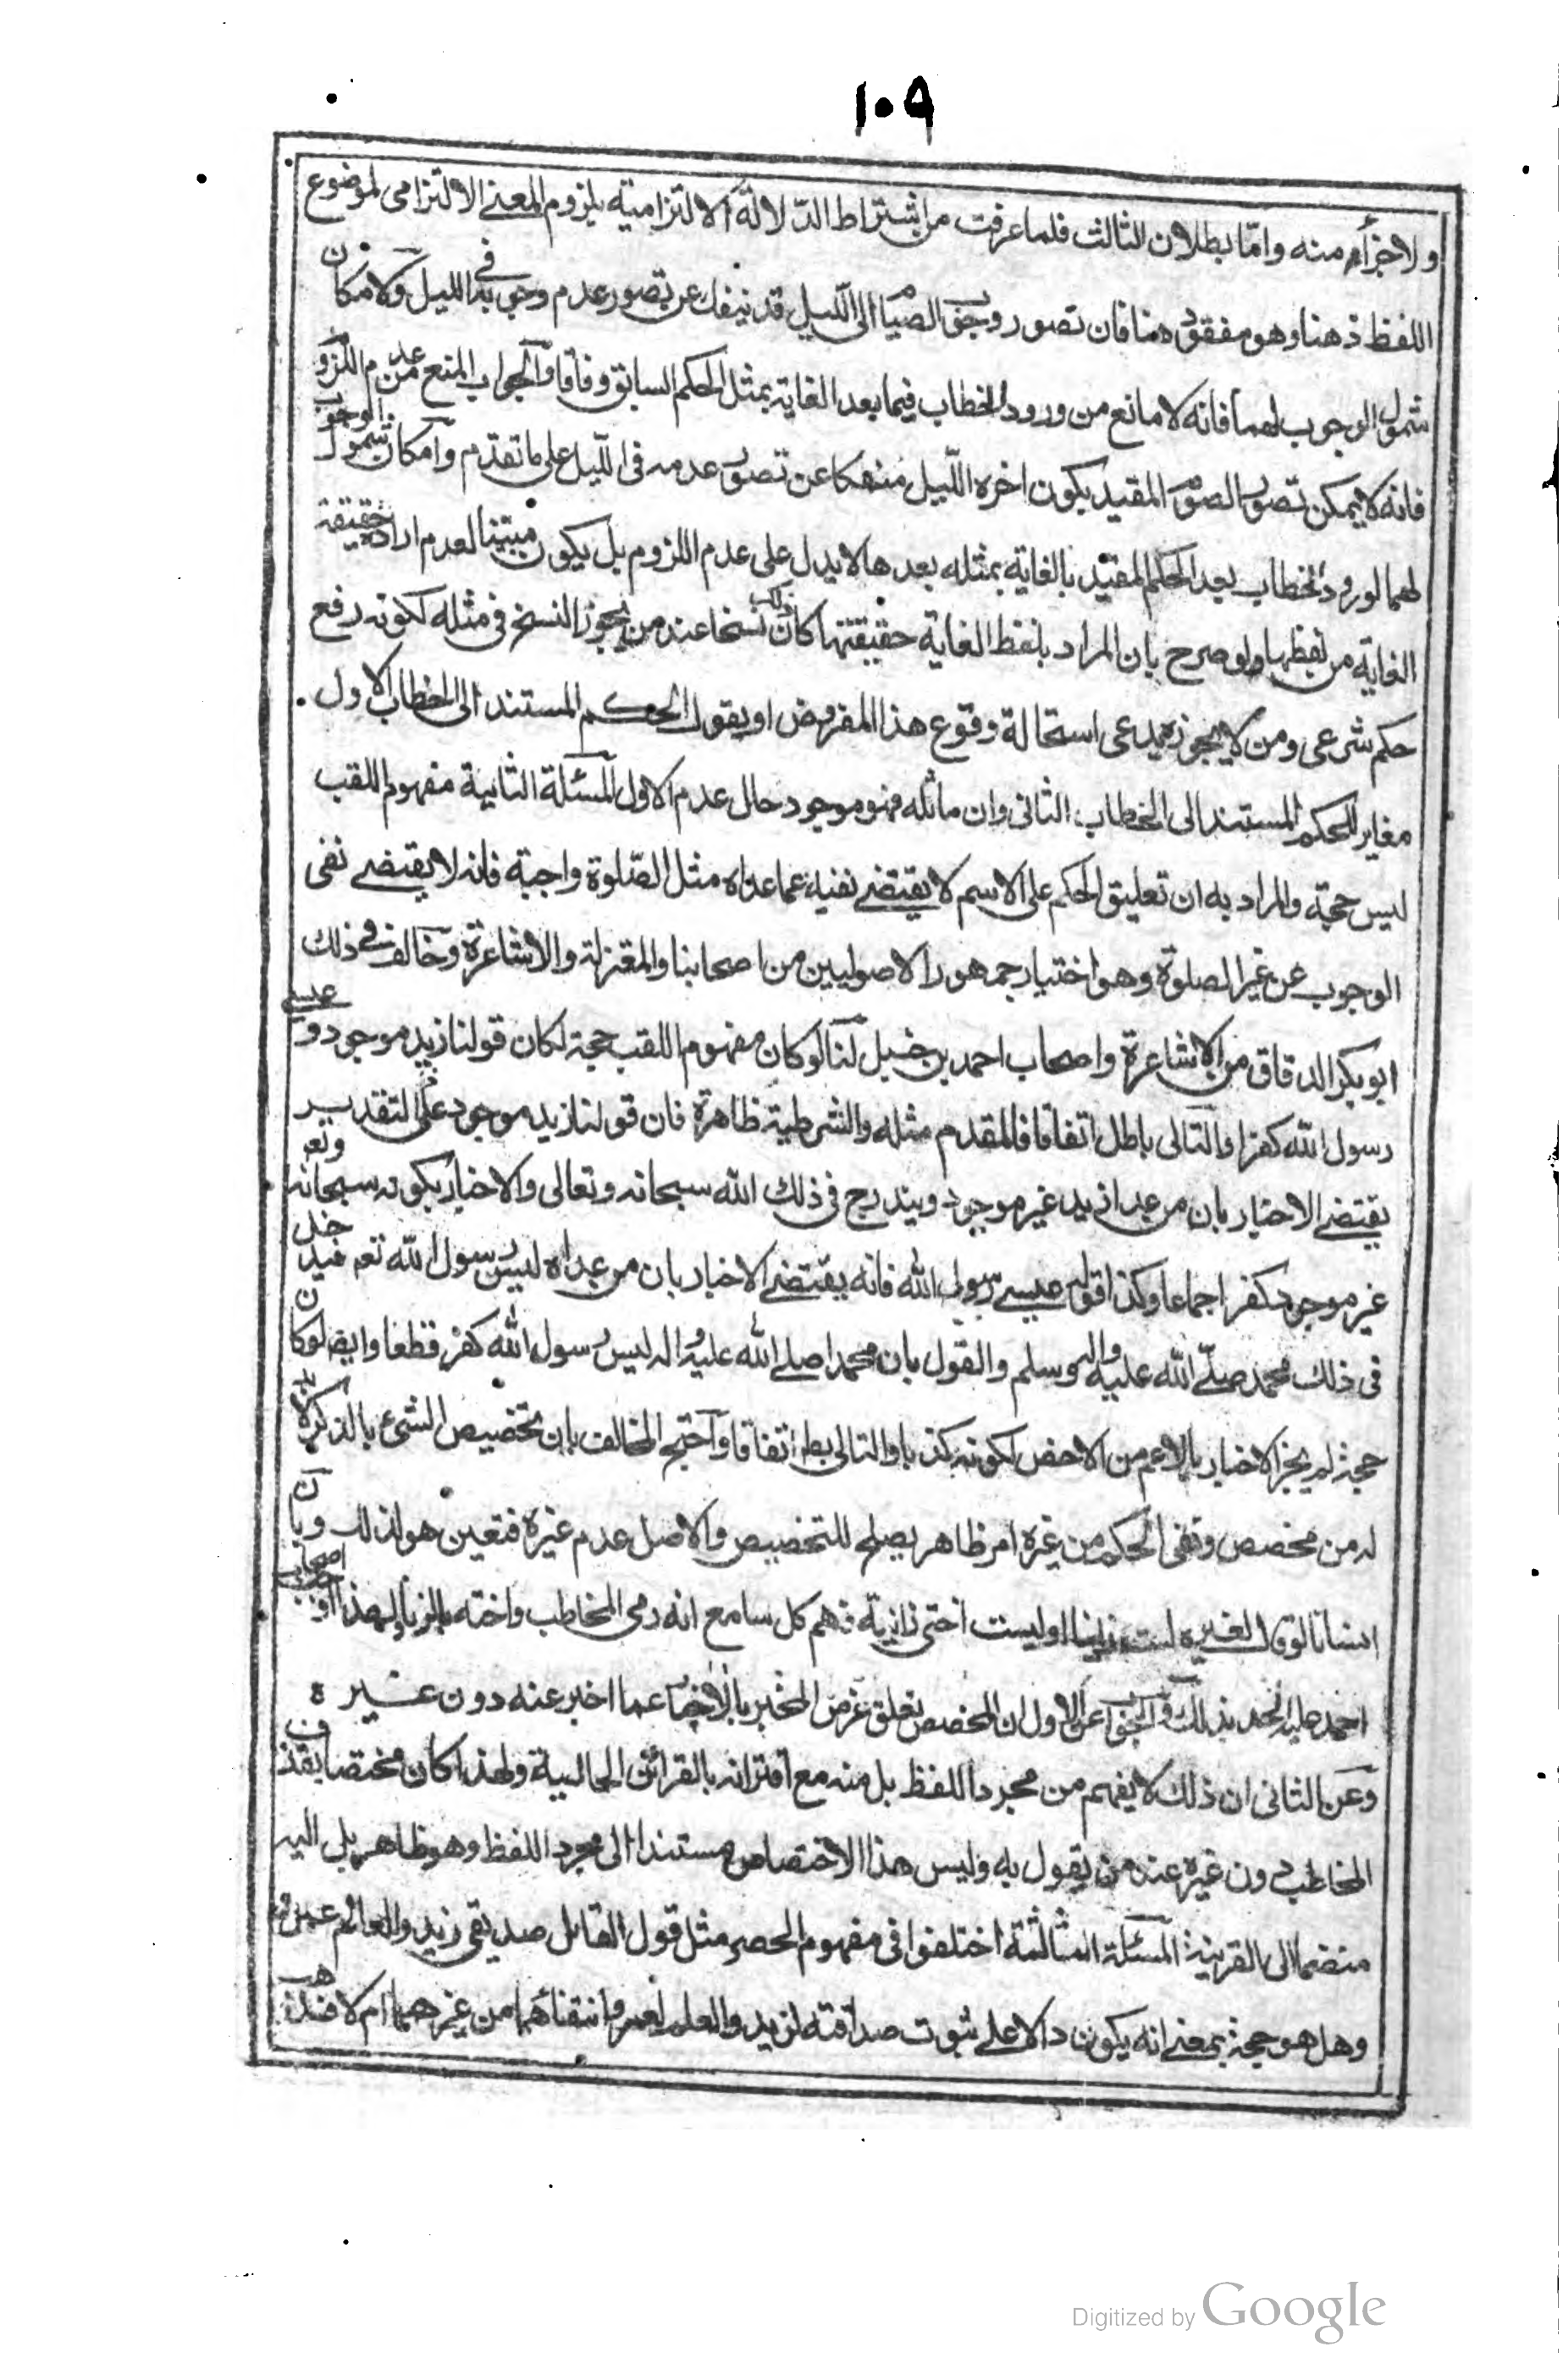 ١٠٩
ولا جزأ منه واما بطلان الثالث فلما عرفت من اشتراط الدلالة الالتزامية بلزوم المعنى الالتزامى لموضوع
اللفظ ذهنا وهو مفقود هنا فان تصور وجوب الصيام الى الليل قد ينفك عن تصور عدم وجوبه فى الليل ولامكان
شمول الوجوب لهما فانه لا مانع من ورود الخطاب فيما بعد الغاية بمثل الحكم السابق وفاقا والجواب المنع من عدم اللزوم
فانه لا يمكن تصور الصوم المقيد بكون اخره الليل منفكا عن تصور عدمه فى الليل على ما تقدم وامكان شمول الوجوب
لهما لورود الخطاب بعد الحكم المقيد بالغاية بمثله بعدها لا يدل على عدم اللزوم بل يكون مبينا لعدم ارادة حقيقة
الغاية من لفظها ولو صرح بان المراد بلفظ الغاية حقيقتها كان ذلك نسخا عند من يجوز النسخ فى مثله لكونه رفع
حكم شرعى ومن لا يجوزه يدعى استحالة وقوع هذا المفروض او يقول الحكم المستند الى الخطاب الاول
مغاير للحكم المستند الى الخطاب الثانى وان ماثله فهو موجود حال عدم الاول المسئلة الثانية مفهوم اللقب
ليس حجة والمراد به ان تعليق الحكم على الاسم لا يقتضى نفيه عما عداه مثل الصلوة واجبة فانه لا يقتضى نفى
الوجوب عن غير الصلوة وهو اختيار جمهور الاصوليين من اصحابنا والمعتزلة والاشاعرة وخالف فى ذلك
ابو بكر الدقاق من الاشاعرة واصحاب احمد بن حنبل لنا لو كان مفهوم اللقب حجة لكان قولنا زيد موجود و عيسى
رسول الله كفرا والتالى باطل اتفاقا فالمقدم مثله والشرطية ظاهرة فان قولنا زيد موجود على التقدير
يقتضى الاخبار بان من عدا زيد غير موجود ويندرج فى ذلك الله سبحانه وتعالى والاخبار بكونه سبحانه وتعم
غير موجود كفر اجماعا وكذا قوله عيسى رسول الله فانه يقتضى الاخبار بان من عداه ليس رسول الله تعم فيدخل
فى ذلك محمد صلى الله عليه واله وسلم والقول بان محمدا صلى الله عليه واله ليس رسول الله كفر قطعا وايضا لو كان
حجة لم يجز الاخبار بالاعم من الاخص لكونه كذبا والتالى بط اتفاقا واحتج المخالف بان تخصيص الشئ بالذكر لا بد
له من مخصص ونفى الحكم من غيره امر ظاهر يصلح للتخصيص والاصل عدم غيره فتعين هو لذلك وبان
انسانا لو قال لغيره لست زانيا او ليست اختى زانية فهم كل سامع انه رمى المخاطب واخته بالزنا ولهذا اوجب اصحاب
احمد عليه الحد بذلك والجواب عن الاول ان المخصص تعلق غرض المخبر بالاخبار عما اخبر عنه دون غيره
وعن الثانى ان ذلك لا يفهم من مجرد اللفظ بل منه مع اقترانه بالقرائن الحالية ولهذا كان مختصا بقذف
المخاطب دون غيره عند من يقول به وليس هذا الاختصاص مستندا الى مجرد اللفظ وهو ظاهر بل اليه
منضما الى القرينة المسئلة الثالثة اختلفوا فى مفهوم الحصر مثل قول القائل صديقى زيد والعالم عمرو
وهل هو حجة بمعنى انه يكون دالا على ثبوت صداقته لزيد والعلم لعمرو انتفائهما من غيرهما ام لا فذهب
Digitized by Google